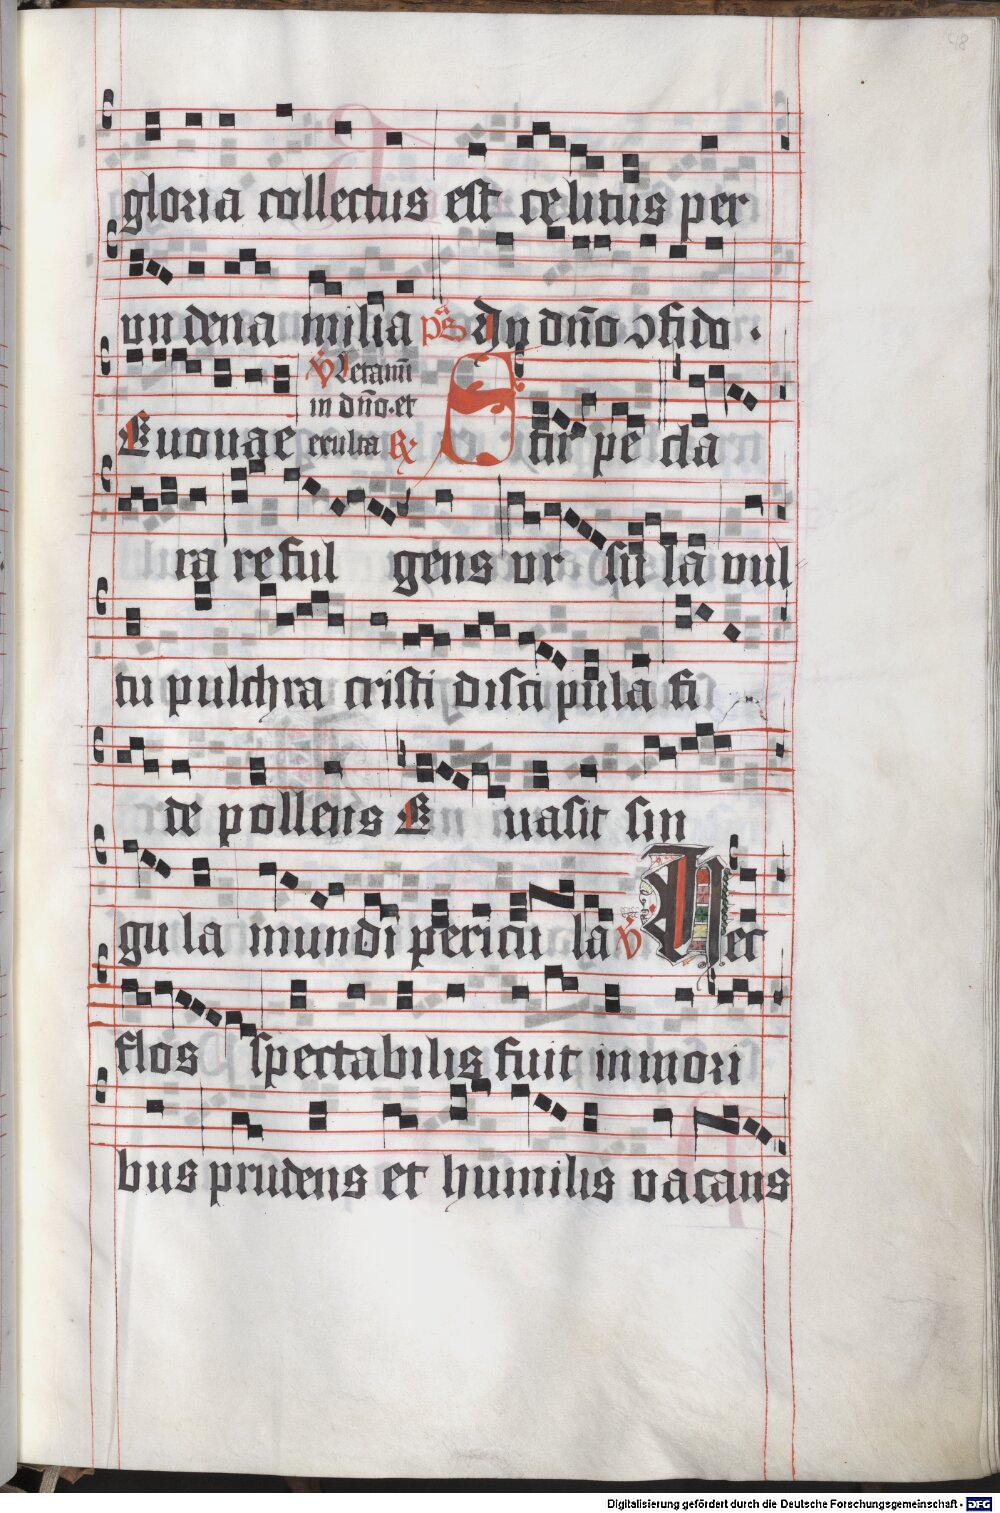 48
gloria collectus est cęlitus per
undena milia ps In dn̄o ↄfido.
℣ Letamī
in dn̄o. et
Euouae exulta ℟. Stir pe cla
ra reful gens ur su la vul
tu pulchra cristi disci pula fi
de pollens E uasit sin
gu la mundi pericu la ℣ Uer
flos spectabilis fuit in mori
bus prudens et humilis vacans
Digitalisierung gefördert durch die Deutsche Forschungsgemeinschaft - DFG